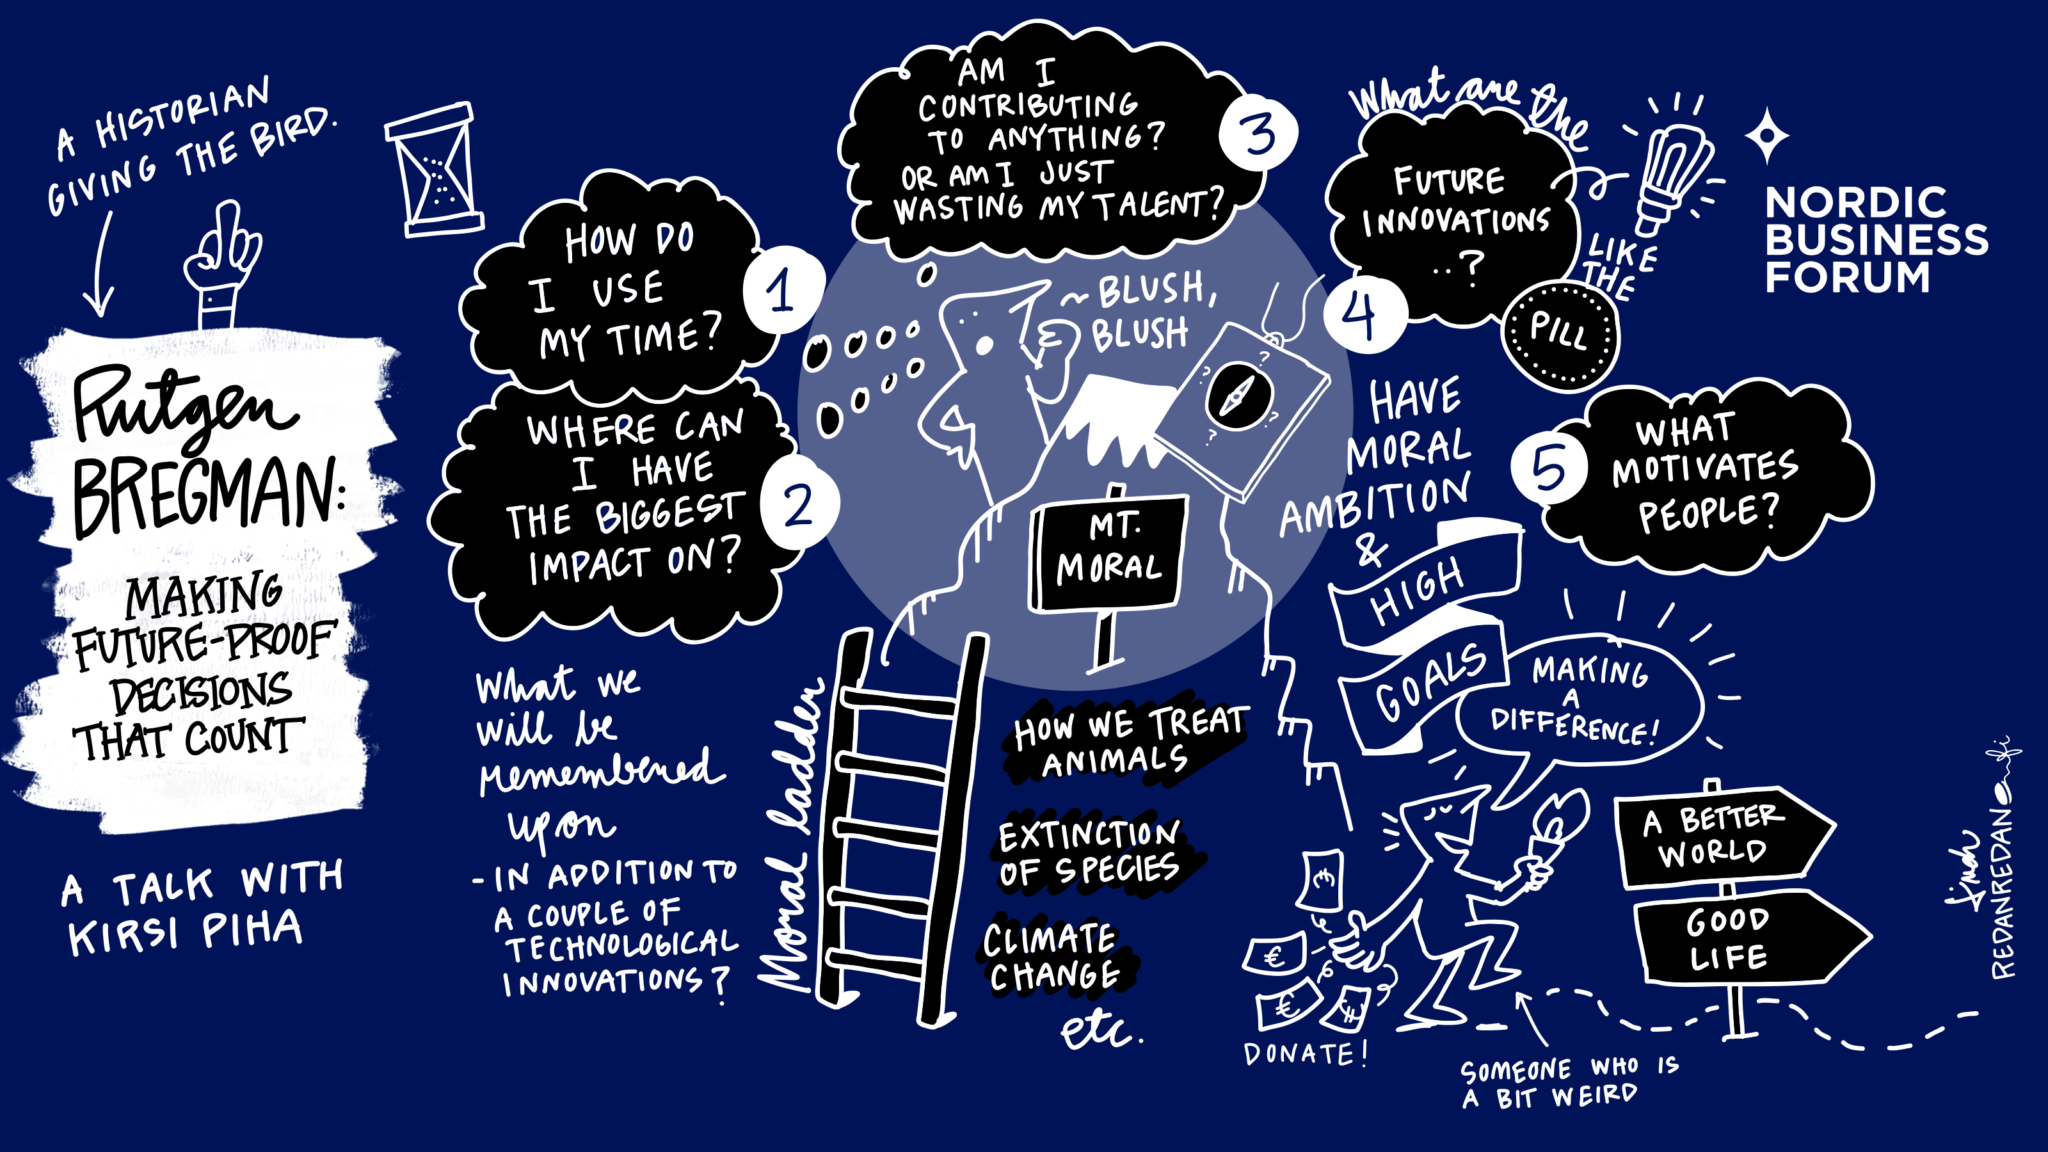 A HISTORIAN
GIVING THE BIRD.
Rutger
BREGMAN:
MAKING
FUTURE-PROOF
DECISIONS
THAT COUNT
A TALK WITH
KIRSI PIHA
HOW DO
I USE
MY TIME?
1
WHERE CAN
I HAVE
THE BIGGEST
IMPACT ON?
2
What we
will be
remembered
upon
- IN ADDITION TO
A COUPLE OF
TECHNOLOGICAL
INNOVATIONS?
AM I
CONTRIBUTING
TO ANYTHING?
OR AM I JUST
WASTING MY TALENT?
3
~ BLUSH,
BLUSH
? ? ? ?
MT.
MORAL
Moral ladder
HOW WE TREAT
ANIMALS
EXTINCTION
OF SPECIES
CLIMATE
CHANGE
etc.
What are the
FUTURE
INNOVATIONS
..?
4
LIKE
THE
PILL
HAVE
MORAL
AMBITION
&
HIGH
GOALS
5
WHAT
MOTIVATES
PEOPLE?
MAKING
A
DIFFERENCE!
€
€
€
€
DONATE!
SOMEONE WHO IS
A BIT WEIRD
A BETTER
WORLD
GOOD
LIFE
NORDIC
BUSINESS
FORUM
REDANREDAN